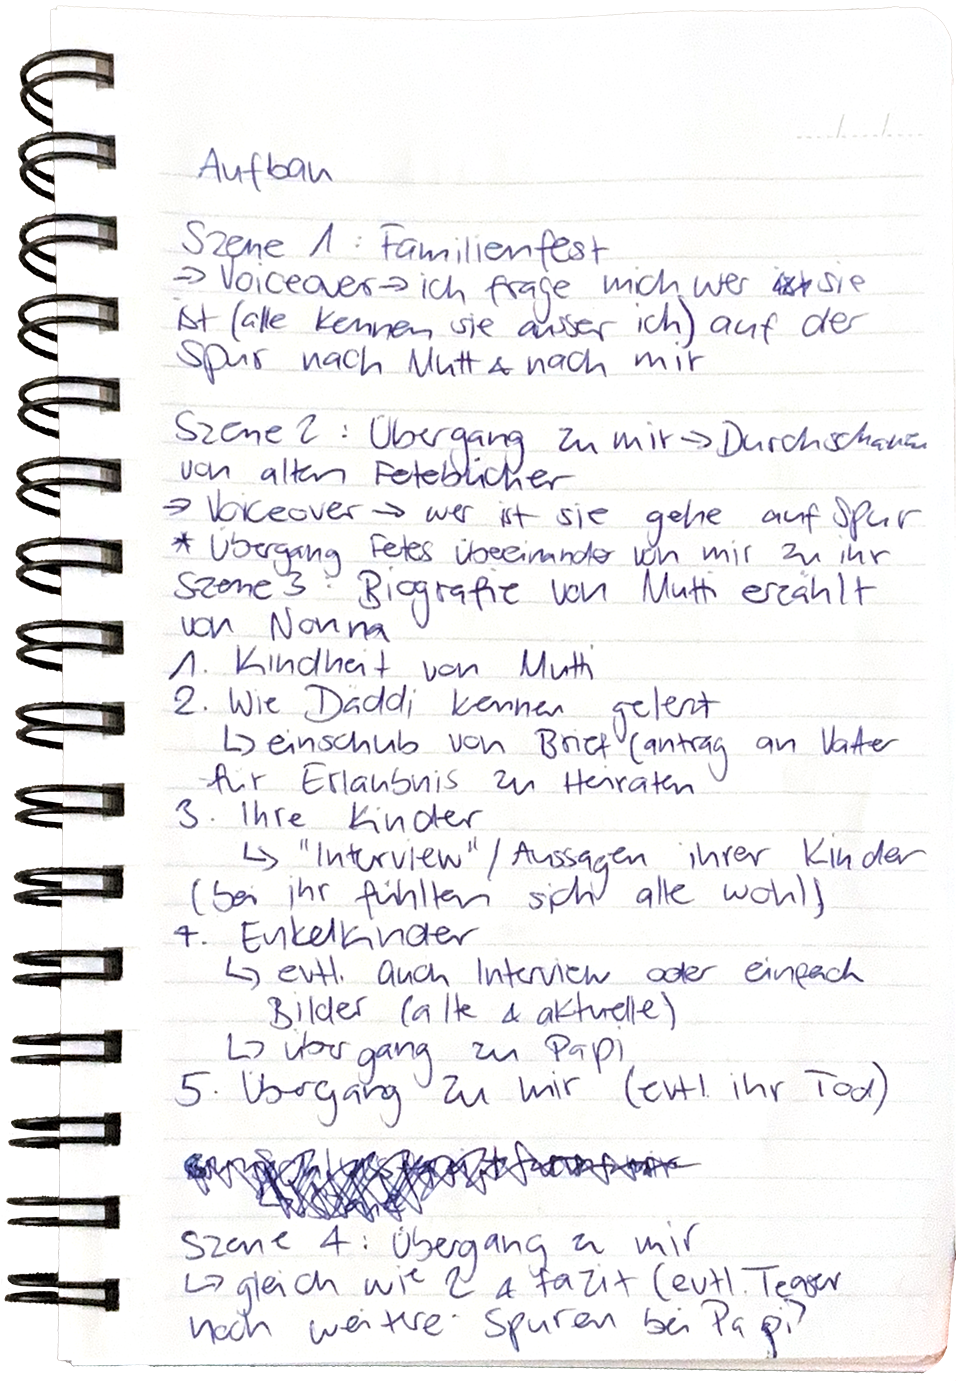 Aufbau
Szene 1: Familienfest
→ Voiceover → ich frage mich wer sie
ist (alle kennen sie ausser ich) auf der
Spur nach Mutti & nach mir
Szene 2: Übergang zu mir → Durchschauen
von alten Fotobücher
→ Voiceover → wer ist sie gehe auf Spur
* Übergang Fotos übereinander von mir zu ihr
Szene 3: Biografie von Mutti erzählt
von Nonna
1. Kindheit von Mutti
2. Wie Däddi kennen gelernt
↳ einschub von Brief (antrag an Vater
für Erlaubnis zu Heiraten
3. Ihre Kinder
↳ "Interview" / Aussagen ihrer Kinder
(bei ihr fühlten sich alle wohl)
4. Enkelkinder
↳ evtl. auch Interview oder einfach
Bilder (alte & aktuelle)
↳ übergang zu Papi
5. Übergang zu mir (evtl. ihr Tod)
Szene 4: Übergang zu mir
↳ gleich wie 2 & fazit (evtl. Teaser
noch weitere Spuren bei Papi?